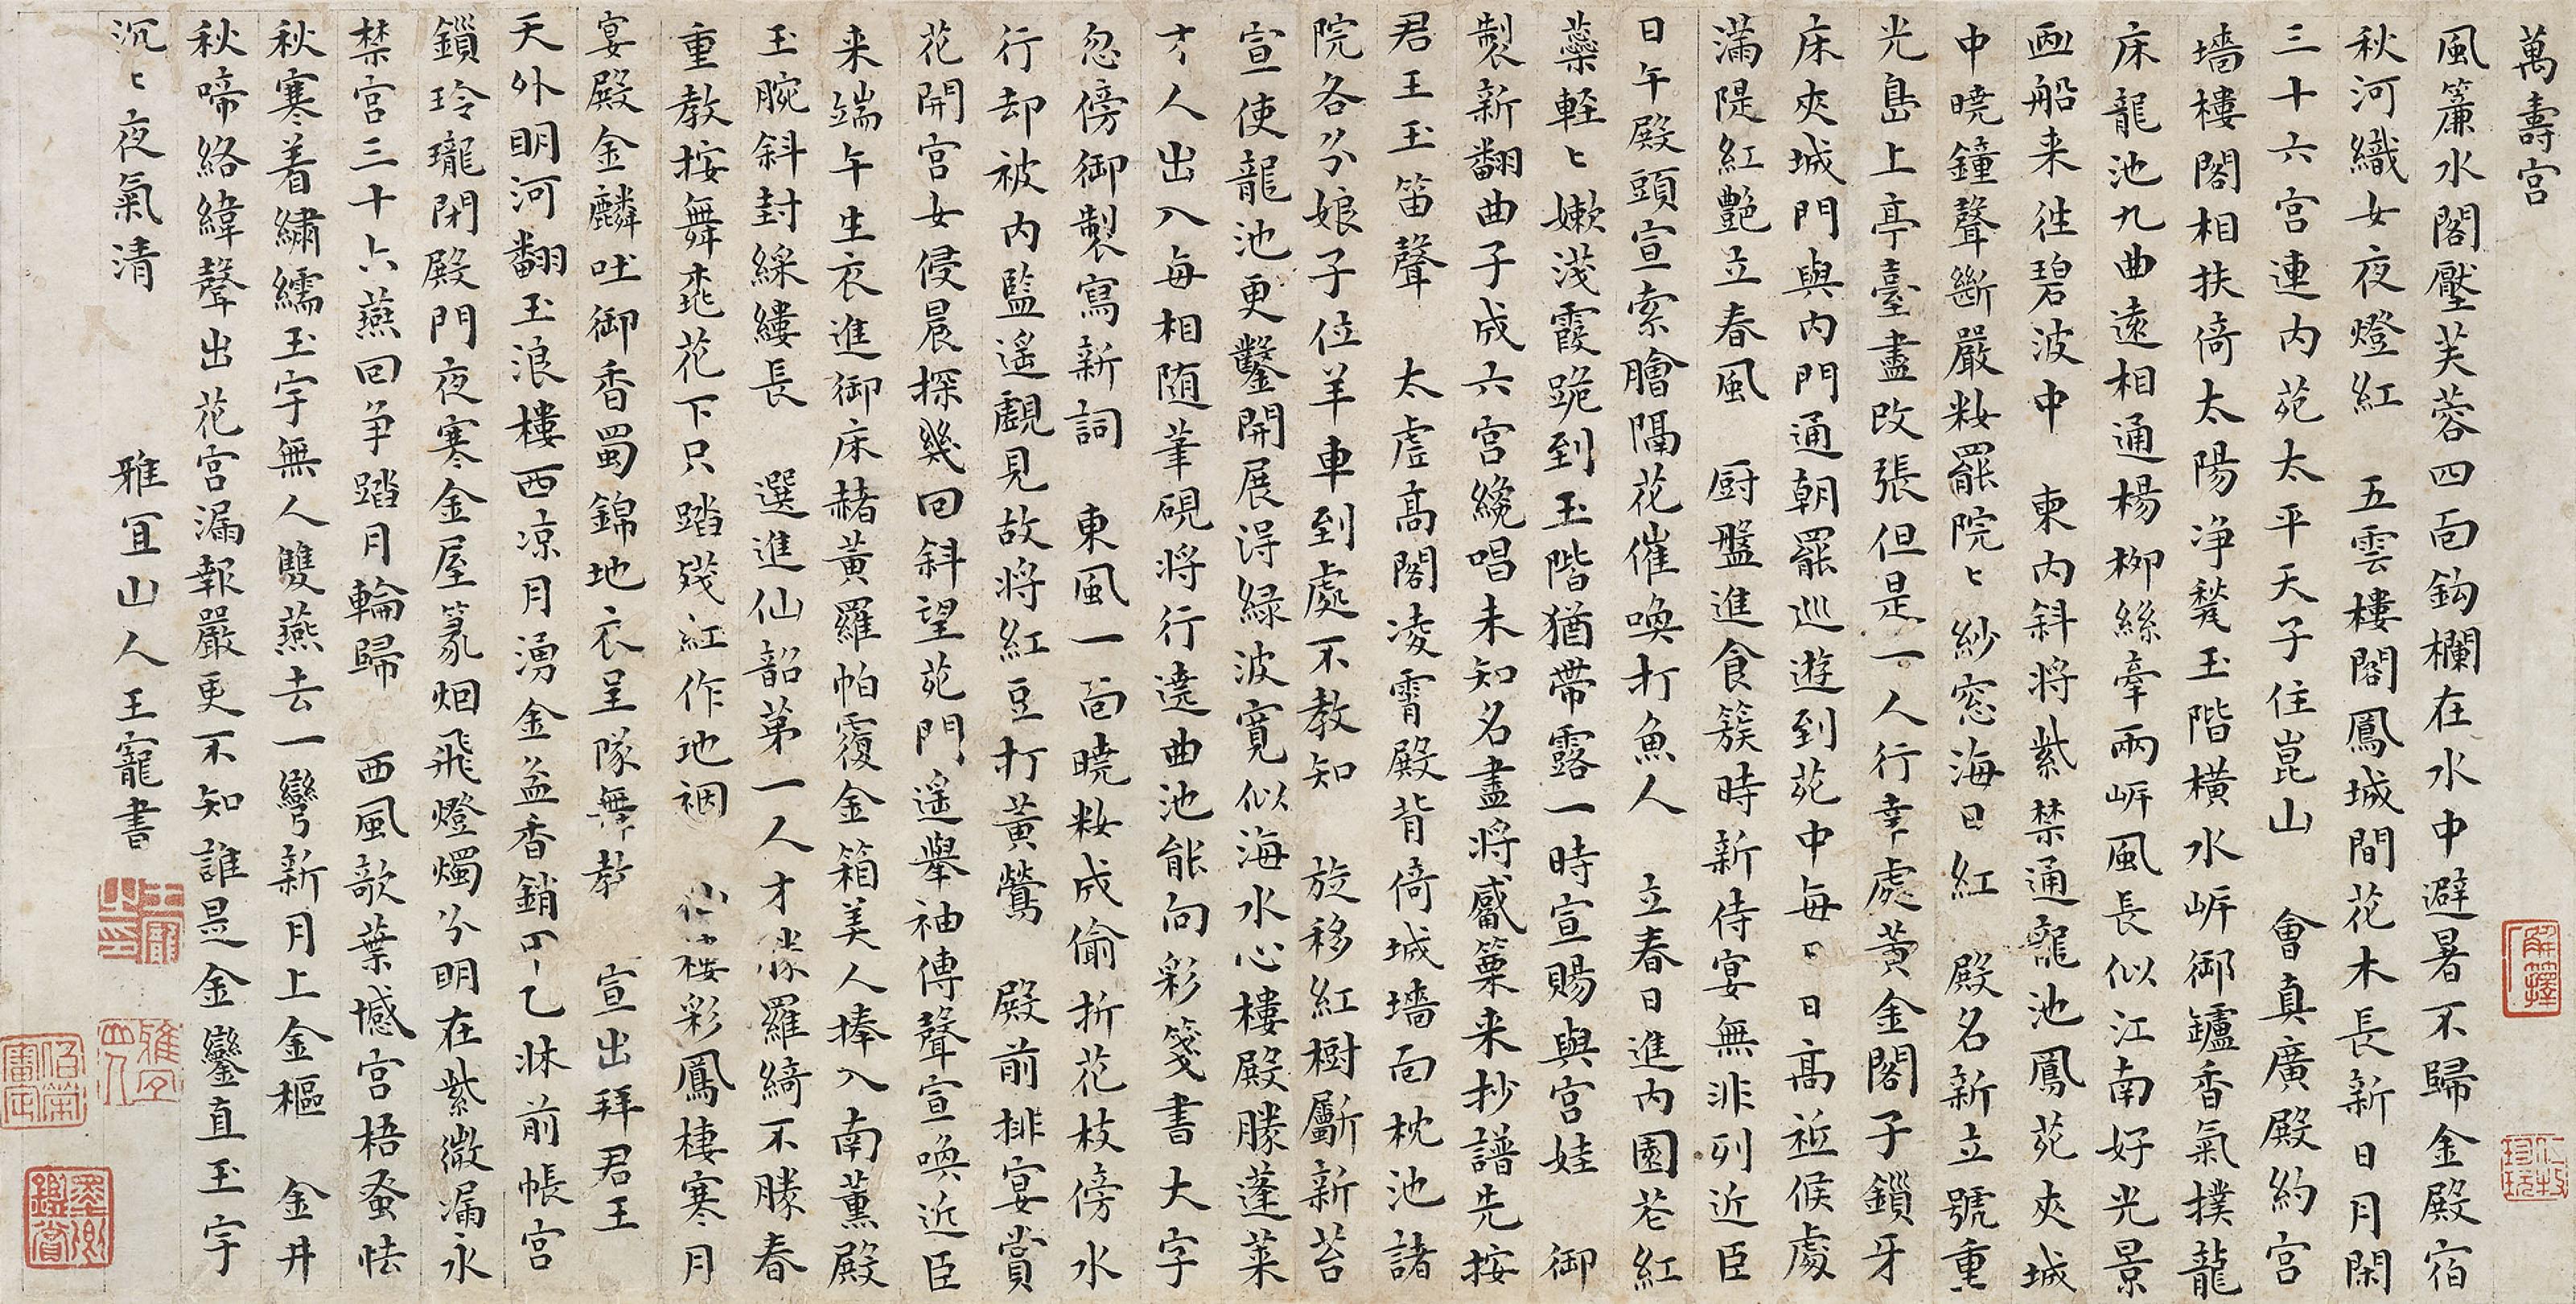 萬壽宮
風簾水閣壓芙蓉四面鈎欄在水中避暑不歸金殿宿
秋河織女夜燈紅　五雲樓閣鳳城間花木長新日月閑
三十六宮連內苑太平天子住崑山　會真廣殿約宮
墻樓閣相扶倚太陽净甃玉階橫水岍御鑪香氣撲龍
床龍池九曲遠相通楊栁絲牽兩岍風長似江南好光景
画船来徃碧波中　東內斜將紫禁通龍池鳳苑夾城
中曉鐘聲斷嚴粧罷院〻紗窓海日紅　殿名新立號重
光島上亭臺盡改張但是一人行幸處黃金閣子鎖牙
床夾城門與內門通朝罷巡遊到苑中每〻日高祗候處
滿隄紅艷立春風　厨盤進食簇時新侍宴無非列近臣
日午殿頭宣索膾隔花催喚打魚人　立春日進內園花紅
蘂軽〻嫰淺霞跪到玉階猶帶露一時宣賜與宮娃　御
製新翻曲子成六宮纔唱未知名盡將觱篥来抄譜先按
君王玉笛聲　太虛高閣凌霄殿背倚城墻面枕池諸
院各分娘子位羊車到處不教知　旋移紅樹斸新苔
宣使龍池更鑿開展淂緑波寬似海水心樓殿勝蓬萊
才人出入每相随筆硯將行遶曲池能向彩箋書大字
忽傍御製寫新詞　東風一面曉粧成偷折花枝傍水
行却被內監遙覷見故將紅豆打黃鶯　殿前排宴賞
花開宮女侵晨探幾回斜望苑門遥舉袖傳聲宣喚近臣
来端午生衣進御床赭黃羅帕覆金箱美人捧入南薰殿
玉腕斜封綵縷長　選進仙韶第一人才勝羅綺不勝春
重教按舞桃花下只踏殘紅作地裀　仙樓彩鳳棲寒月
宴殿金麟吐御香蜀錦地衣呈隊舞教　宣出拜君王
天外明河翻玉浪樓西凉月湧金盆香銷甲乙牀前帳宮
鎖玲瓏閉殿門夜寒金屋篆烟飛燈燭分明在紫微漏永
禁宮三十六燕回争踏月輪歸　西風歌葉撼宮梧蚤怯
秋寒着繡繻玉宇無人雙燕去一彎新月上金樞　金井
秋啼絡緯聲出花宮漏報嚴更不知誰是金鑾直玉宇
沉〻夜氣清　　雅宜山人王寵書